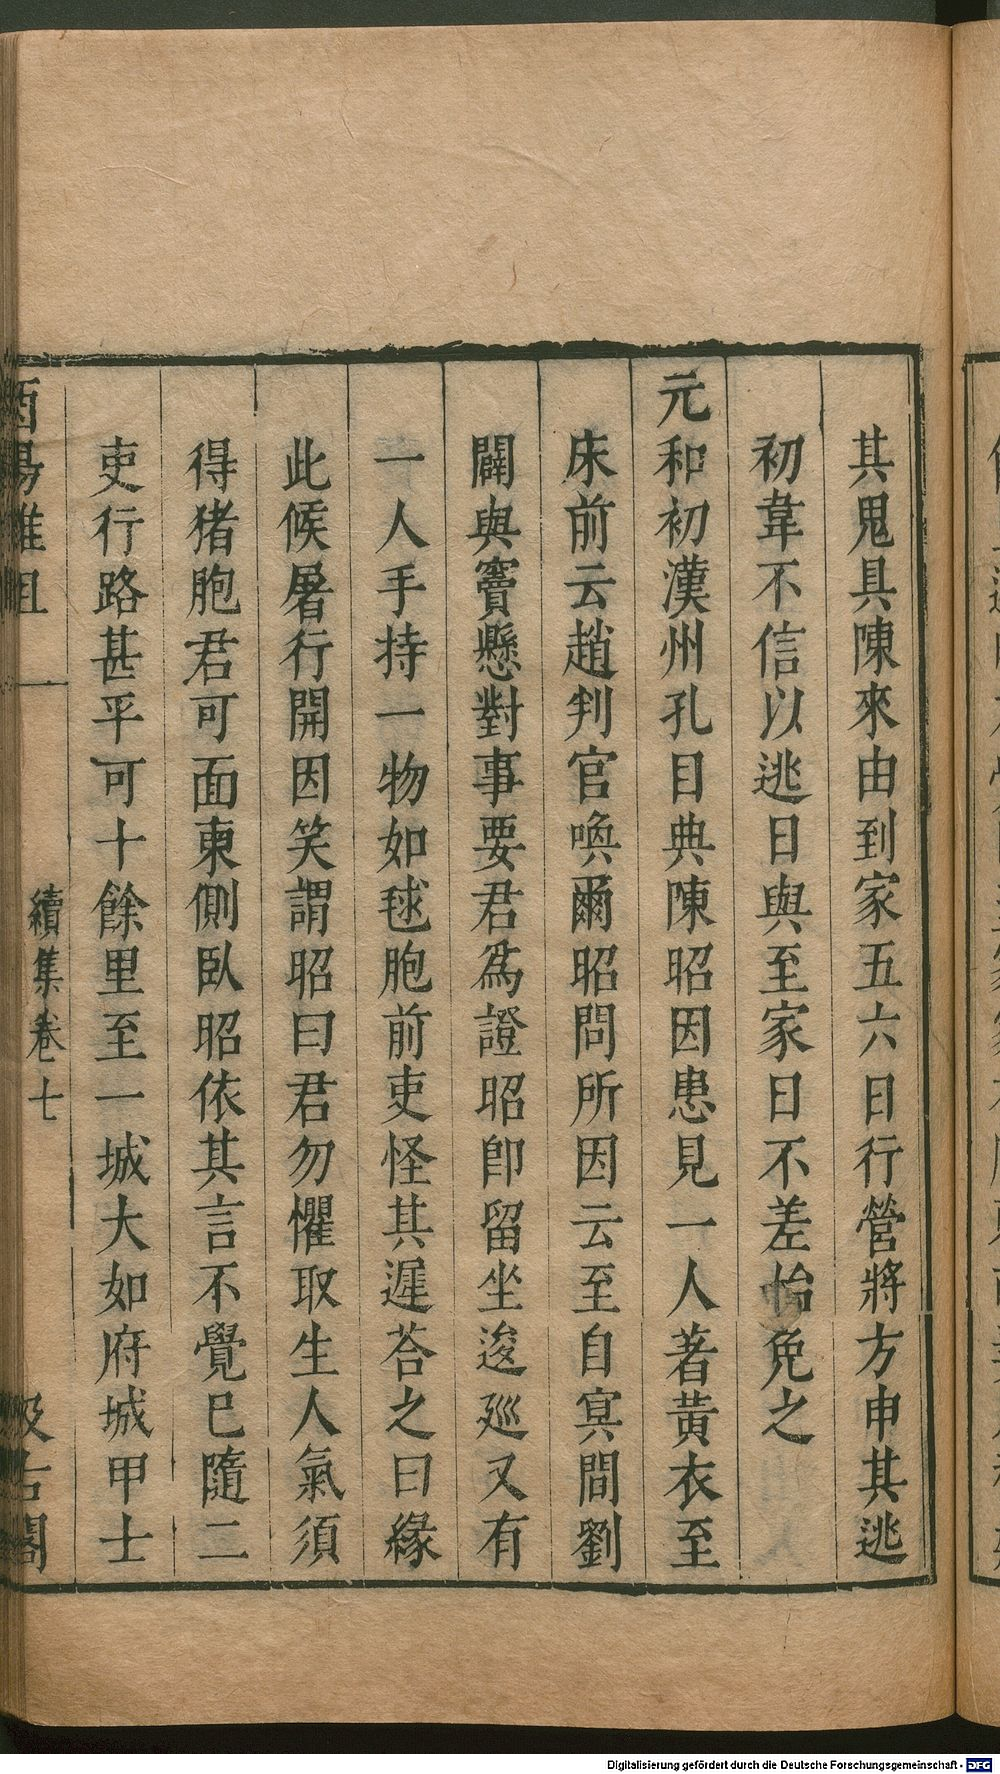 其鬼具陳來由到家五六日行營將方申其逃
初韋不信以逃日與至家日不差怡免之
元和初漢州孔目典陳昭因患見一人著黃衣至
床前云趙判官喚爾昭問所因云至自冥間劉
闢與竇懸對事要君爲證昭卽留坐逡廵又有
一人手持一物如毬胞前吏怪其遲荅之曰緣
此候屠行開因笑謂昭曰君勿懼取生人氣須
得猪胞君可面東側臥昭依其言不覺已隨二
吏行路甚平可十餘里至一城大如府城甲士
酉陽雜俎
續集卷七
汲古閣
Digitalisierung gefördert durch die Deutsche Forschungsgemeinschaft - DFG